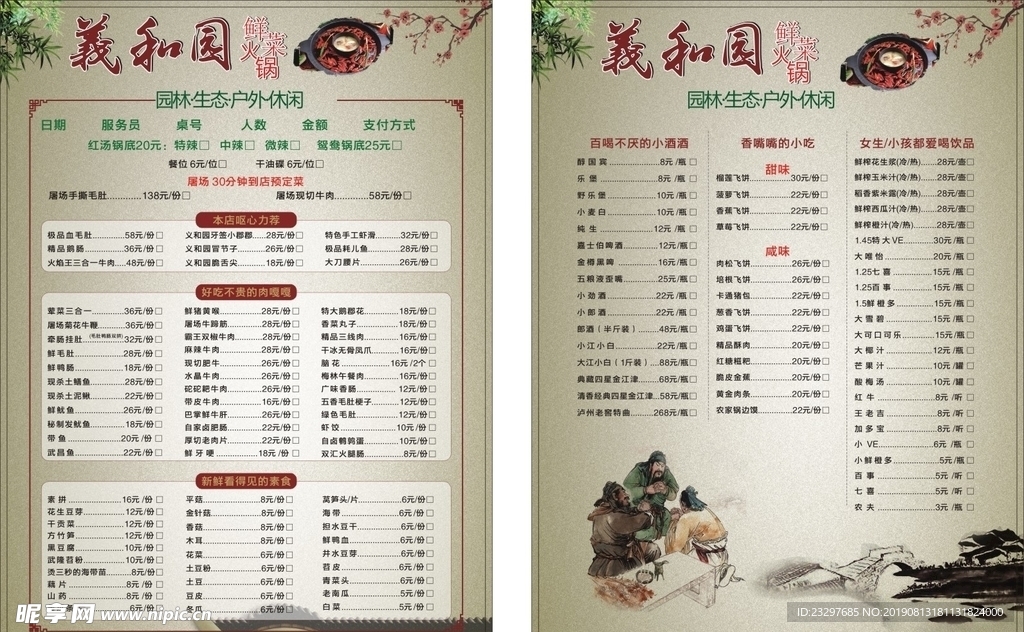 義和园 鲜菜火锅
园林·生态·户外·休闲
日期 服务员 桌号 人数 金额 支付方式
红汤锅底20元：特辣□ 中辣□ 微辣□ 鸳鸯锅底25元□
餐位 6元/位□ 干油碟 6元/位□
屠场 30分钟到店预定菜
屠场手撕毛肚............138元/份□ 屠场现切牛肉............58元/份□
本店呕心力荐
极品血毛肚......58元/份□ 义和园牙签小郡郡......28元/份□ 特色手工虾滑......32元/份□
精品鹅肠......36元/份□ 义和园冒节子......26元/份□ 极品耗儿鱼......28元/份□
火焰王三合一牛肉......48元/份□ 义和园脆舌尖......18元/份□ 大刀腰片......26元/份□
好吃不贵的肉嘎嘎
荤菜三合一......36元/份□ 鲜猪黄喉......28元/份□ 特大鹅郡花......18元/份□
屠场菊花牛鞭......36元/份□ 屠场牛蹄筋......28元/份□ 香菜丸子......18元/份□
牵肠挂肚......32元/份□ 霸王双椒牛肉......28元/份□ 精品三线肉......16元/份□
鲜毛肚......28元/份□ 麻辣牛肉......28元/份□ 干冰无骨凤爪......16元/份□
鲜鸭肠......18元/份□ 现切肥牛......26元/份□ 脑花......16元/2个□
现杀土鳝鱼......28元/份□ 水晶牛肉......26元/份□ 梅林午餐肉......16元/份□
现杀土泥鳅......22元/份□ 砣砣耙牛肉......26元/份□ 广味香肠......12元/份□
鲜鱿鱼......26元/份□ 带皮牛肉......16元/份□ 五香毛肚梗子......12元/份□
秘制发鱿鱼......18元/份□ 巴掌鲜牛肝......26元/份□ 绿色毛肚......12元/份□
带鱼......20元/份□ 自家卤肥肠......22元/份□ 虾饺......10元/份□
武昌鱼......22元/份□ 厚切老肉片......22元/份□ 自卤鹌鹑蛋......10元/份□
鲜牙哽......18元/份□ 双汇火腿肠......8元/份□
新鲜看得见的素食
素拼......16元/份□ 平菇......8元/份□ 莴笋头/片......6元/份□
花生豆芽......12元/份□ 金针菇......8元/份□ 海带......6元/份□
干贡菜......12元/份□ 香菇......8元/份□ 担水豆干......6元/份□
方竹笋......12元/份□ 木耳......8元/份□ 鲜鸭血......6元/份□
黑豆腐......10元/份□ 花菜......6元/份□ 井水豆芽......6元/份□
武隆苕粉......10元/份□ 土豆粉......6元/份□ 苕皮......6元/份□
烫三秒的海带苗......8元/份□ 土豆......6元/份□ 青菜头......6元/份□
藕片......8元/份□ 豆皮......6元/份□ 老南瓜......5元/份□
山药......8元/份□ 冬瓜......6元/份□ 白菜......5元/份□
6元/份□
昵享网 www.nipic.cn
義和园 鲜菜火锅
园林·生态·户外·休闲
百喝不厌的小酒酒
醇国宾......8元/瓶□
乐堡......8元/瓶□
野乐堡......10元/瓶□
小麦白......10元/瓶□
纯生......12元/瓶□
嘉士伯啤酒......12元/瓶□
金樽黑啤......16元/瓶□
五粮液歪嘴......25元/瓶□
小劲酒......22元/瓶□
小郎酒......22元/瓶□
郎酒（半斤装）......48元/瓶□
小江小白......22元/瓶□
大江小白（1斤装）......88元/瓶□
典藏四星金江津......68元/瓶□
清香经典四星金江津......58元/瓶□
泸州老窖特曲......268元/瓶□
香嘴嘴的小吃
甜味
榴莲飞饼......30元/份□
菠萝飞饼......22元/份□
香蕉飞饼......22元/份□
草莓飞饼......22元/份□
咸味
肉松飞饼......26元/份□
培根飞饼......26元/份□
卡通猪包......22元/份□
葱香飞饼......22元/份□
鸡蛋飞饼......22元/份□
精品酥肉......20元/份□
红糖糍粑......20元/份□
脆皮金蕉......20元/份□
黄金肉条......20元/份□
农家锅边馍......22元/份□
女生/小孩都爱喝饮品
鲜榨花生浆(冷/热)......28元/壶□
鲜榨玉米汁(冷/热)......28元/壶□
稻香紫米露(冷/热)......28元/壶□
鲜榨西瓜汁(冷/热)......28元/壶□
鲜榨橙汁(冷/热)......28元/壶□
1.45特大VE......30元/瓶□
大唯怡......20元/瓶□
1.25七喜......15元/瓶□
1.25百事......15元/瓶□
1.5鲜橙多......15元/瓶□
大雪碧......15元/瓶□
大可口可乐......15元/瓶□
大椰汁......12元/瓶□
芒果汁......10元/罐□
酸梅汤......10元/罐□
红牛......8元/听□
王老吉......8元/听□
加多宝......8元/听□
小VE......6元/瓶□
小鲜橙多......5元/瓶□
百事......5元/听□
七喜......5元/听□
农夫......3元/瓶□
ID:23297685 NO:20190813181131824000